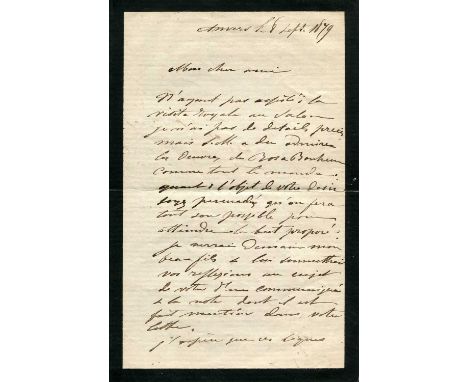 Anvers le 8 Sept. 1879
Mon cher ami
N'ayant pas assisté à la
visite royale au Salon
je n'ai pas de détails précis
mais S.M. a du admirer
les Oeuvres de Rosa Bonheur
comme tout le monde
quant à l'objet de votre désir
soyez persuadé qu'on fera
tout son possible pour
atteindre le but proposé.
je verrai demain mon
beau fils & lui soumettrai
vos reflexions au sujet
de votre d'une communiqué
à la note dont il est
fait mention dans votre
lettre.
j'espère que ces lignes